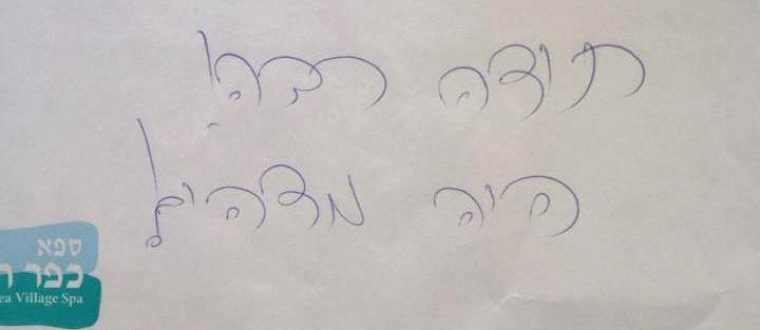 תודה רבה!
היה מדהים!
ספא
כפר
ea Village Spa